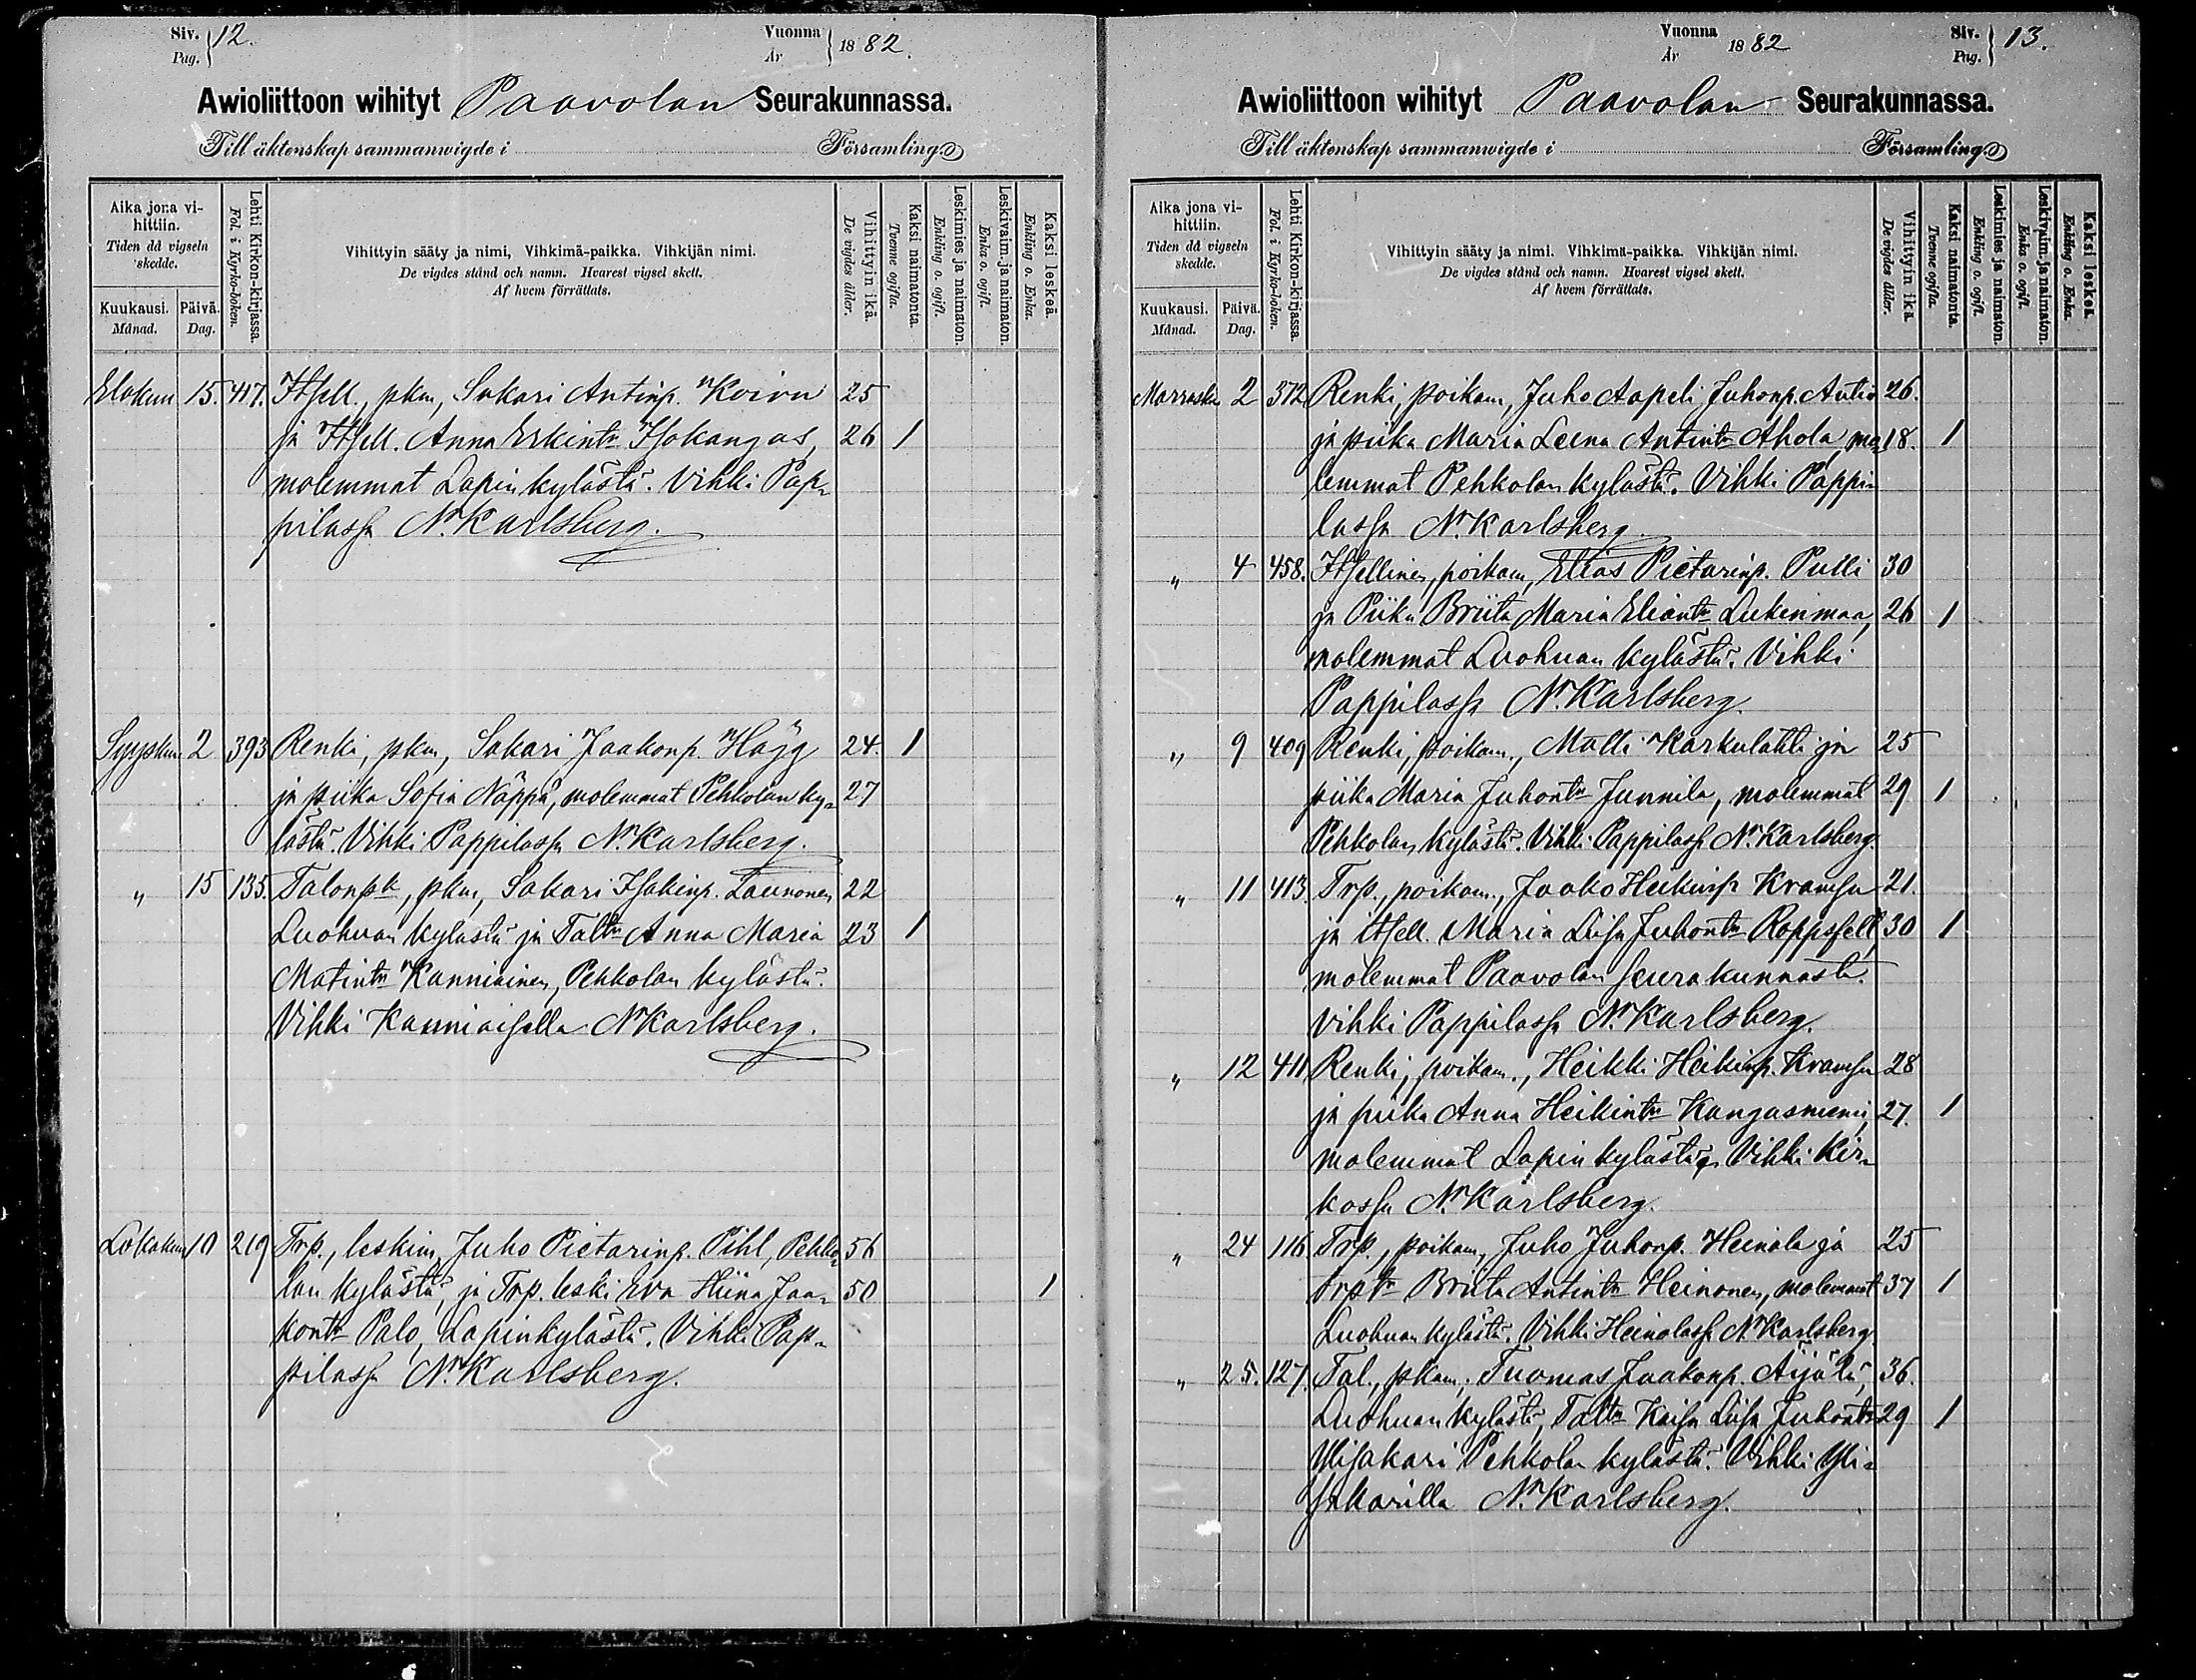 Siv. Pag. 12.
Vuonna År 1882.
Awioliittoon wihityt Paavolan Seurakunnassa.
Till äktenskap sammanwigde i Församling.
Aika jona vihittiin. Tiden då vigseln skedde.
Kuukausi. Månad.
Päivä. Dag.
Lehti Kirkon-kirjassa. Fol. i Kyrko-boken.
Vihittyin sääty ja nimi, Vihkimä-paikka. Vihkijän nimi.
De vigdes stånd och namn. Hvarest vigsel skett.
Af hvem förrättats.
Vihittyin ikä. De vigdes ålder.
Kaksi naimatonta. Tvenne ogifta.
Leskimies ja naimaton. Enkling o. ogift.
Leskivaim. ja naimaton. Enka o. ogift.
Kaksi leskeä. Enkling o. Enka.
Elokuu 15. 417. Itsell., pkm, Sakari Antinp. Koivu 25
ja Itsell. Anna Erkintr Isokangas, 26 1
molemmat Lapinkylästä. Vihki Pap-
pilassa Nr. Karlsberg.
Syyskuu 2 393 Renki, pkm, Sakari Jaakonp. Hägg 24. 1
ja piika Sofia Näppä, molemmat Pehkolan ky- 27
lästä. Vihki Pappilassa Nr. Karlsberg.
„ 15 135. Talonpk, pkm, Sakari Isakinp. Launonen 22
Luohuan kylästä ja Taltr Anna Maria 23 1
Matintr Kanniainen, Pehkolan kylästä.
Vihki Kanniaisella Nr Karlsberg.
Lokakuu 10 219 Trp., leskim, Juho Pietarinp. Pihl, Pehko- 56
lan kylästä, ja Trp. leski Eva Stiina Jaa- 50 1
kontr Palo, Lapinkylästä. Vihki Pap-
pilassa Nr. Karlsberg.
Vuonna År 1882
Siv. Pag. 13.
Awioliittoon wihityt Paavolan Seurakunnassa.
Till äktenskap sammanwigde i Församling.
Aika jona vihittiin. Tiden då vigseln skedde.
Kuukausi. Månad.
Päivä. Dag.
Lehti Kirkon-kirjassa. Fol. i Kyrko-boken.
Vihittyin sääty ja nimi. Vihkimä-paikka. Vihkijän nimi.
De vigdes stånd och namn. Hvarest vigsel skett.
Af hvem förrättats.
Vihittyin ikä. De vigdes ålder.
Kaksi naimatonta. Tvenne ogifta.
Leskimies ja naimaton. Enkling o. ogift.
Leskivaim. ja naimaton. Enka o. ogift.
Kaksi leskeä. Enkling o. Enka.
Marrask. 2 372 Renki, poikam, Juho Aapeli Juhonp. Autio 26.
ja piika Maria Leena Antintr Ahola, mo- 18. 1
lemmat Pehkolan kylästä. Vihki Pappi-
lassa Nr. Karlsberg.
„ 4 458. Itsellinen, poikam, Elias Pietarinp. Pulli 30
ja Piika Briita Maria Eliantr Lukinmaa, 26 1
molemmat Luohuan kylästä. Vihki
Pappilassa Nr. Karlsberg.
„ 9 409 Renki, poikam., Matti Karkulahti ja 25
piika Maria Juhontr Junnila, molemmat 29 1
Pehkolan kylästä. Vihki Pappilassa Nr. Karlsberg.
„ 11 413. Trp., poikam., Jaako Heikinp. Kramsu 21.
ja itsell. Maria Liisa Juhontr 30 1
molemmat Paavolan seurakunnasta.
Vihki Pappilassa Nr. Karlsberg.
„ 12 411 Renki, poikam., Heikki Heikinp. Kramsu 28
ja piika Anna Heikintr Kangasniemi, 27. 1
molemmat Lapin kylästä, Vihki Kir-
kossa Nr. Karlsberg.
„ 24 116 Trp., poikam, Juho Juhonp. Heinola ja 25
trptr Briita Antintr Heinonen, molemmat 37 1
Luohuan kylästä. Vihki Heinolassa Nr. Karlsberg.
„ 25. 127. Tal., pkam, Tuomas Jaakonp. Äijälä, 36.
Luohuan kylästä, Taltr Kaisa Liisa Juhontr 29 1
Ylisakari Pehkolan kylästä. Vihki Yli-
sakarilla Nr. Karlsberg.